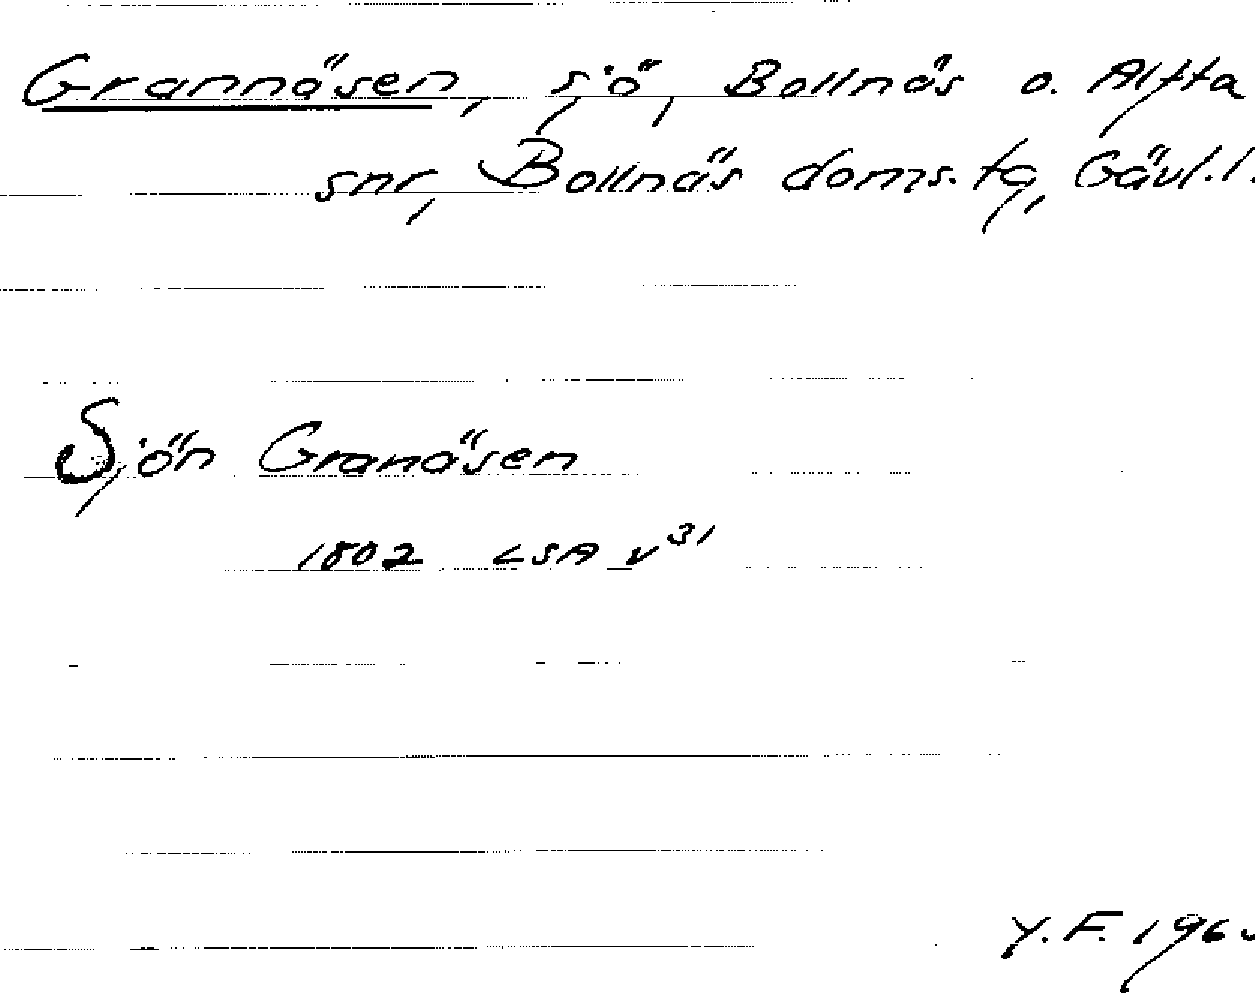 Grannäsen, sjö, Bollnäs o. Alfta
snr, Bollnäs doms.tg, Gävl.l.
Sjön Granäsen
1802 LSA V³¹
Y.F. 196